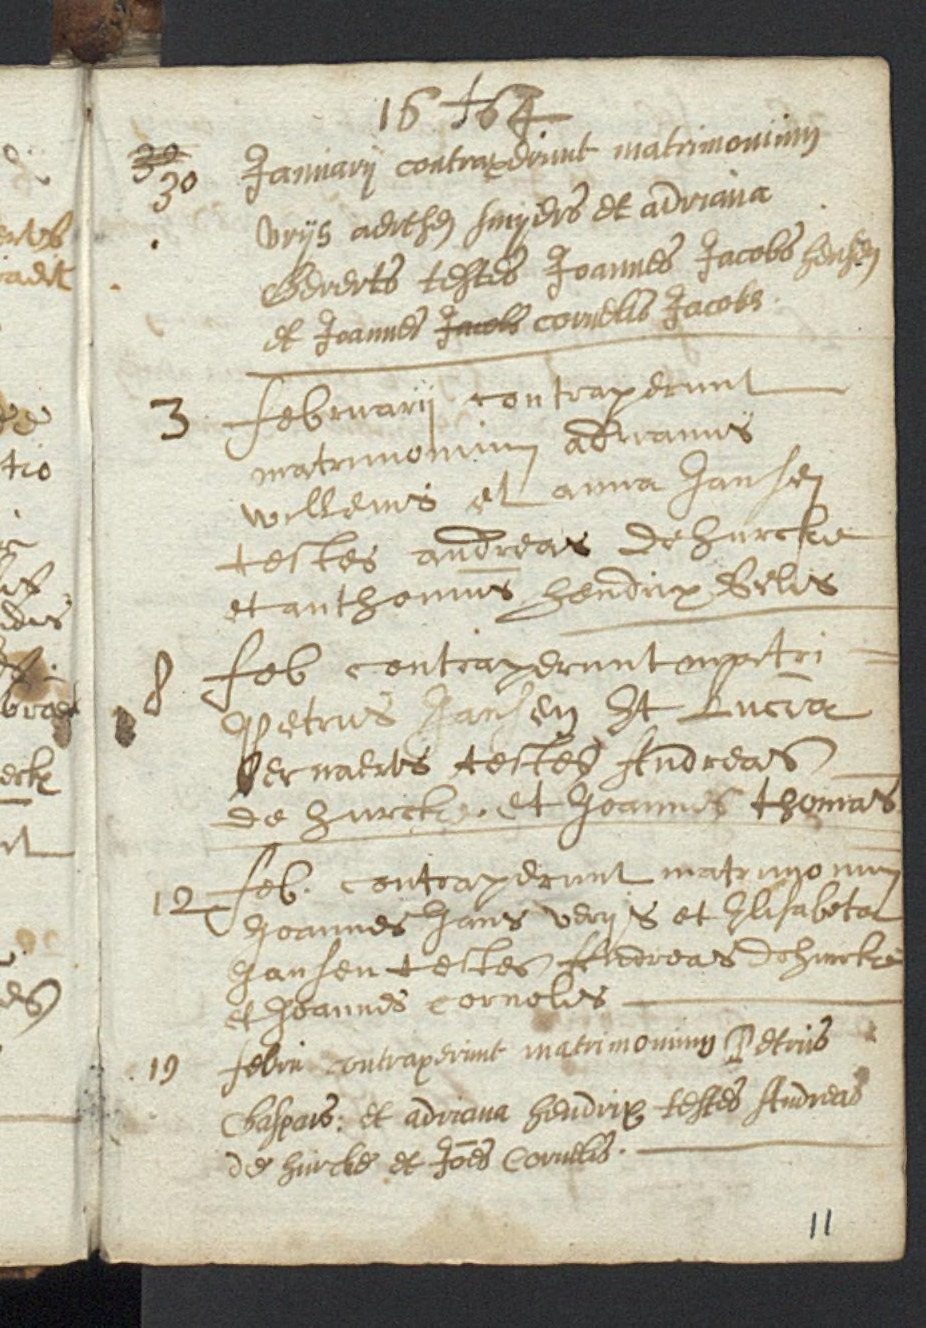 16 64
30
30 Januarij contraxerunt matrimonium
vrijs aertsen snijders et adriana
Geverts testes Joannes Jacobs hensen
et Joannes Jacobs cornelis Jacobs.
3 februarij contraxerunt
matrimonium adrianus
willems et anna Jansen
testes andreas de hurcke
et anthonius hendrix Belis
8 feb contraxerunt
petrus Jansen et Lucia
bernaerts testes Andreas
de hurcke. et Joannes thomas
12 feb. contraxerunt matrimonium
Joannes Jans verijs et Elisabeta
Jansen testes Andreas de hurcke
et Joannes cornelis
19 febru contraxerunt matrimonium Petrus
Caspars: et adriana hendrix testes Andreas
de hurcke et Joes Cornelis.
11